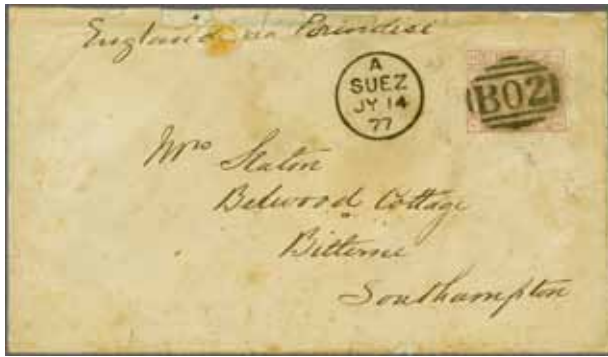 England via Brindisi
A
SUEZ
JY 14
77
B02
Mrs Staton
Belwood Cottage
Bitterne
Southampton